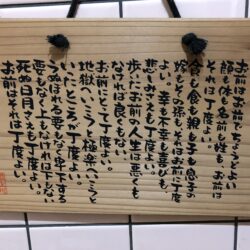 お前はお前でちょうどよい
顔も体も名前も姓もお前に
それは丁度よい
貧も富も親も子も息子の
嫁もその孫もそれはお前に丁度
よい 幸も不幸も喜びも
悲しみさえも丁度よい
歩いたお前の人生は悪くも
なければ良くもない
お前にとって丁度よい
地獄へいこうと極楽へいこうと
いったところが丁度よい
うぬぼれる要もなく卑下する
要もなく上もなければ下もない
死ぬ日月さえも丁度よい
お前はそれは丁度よい